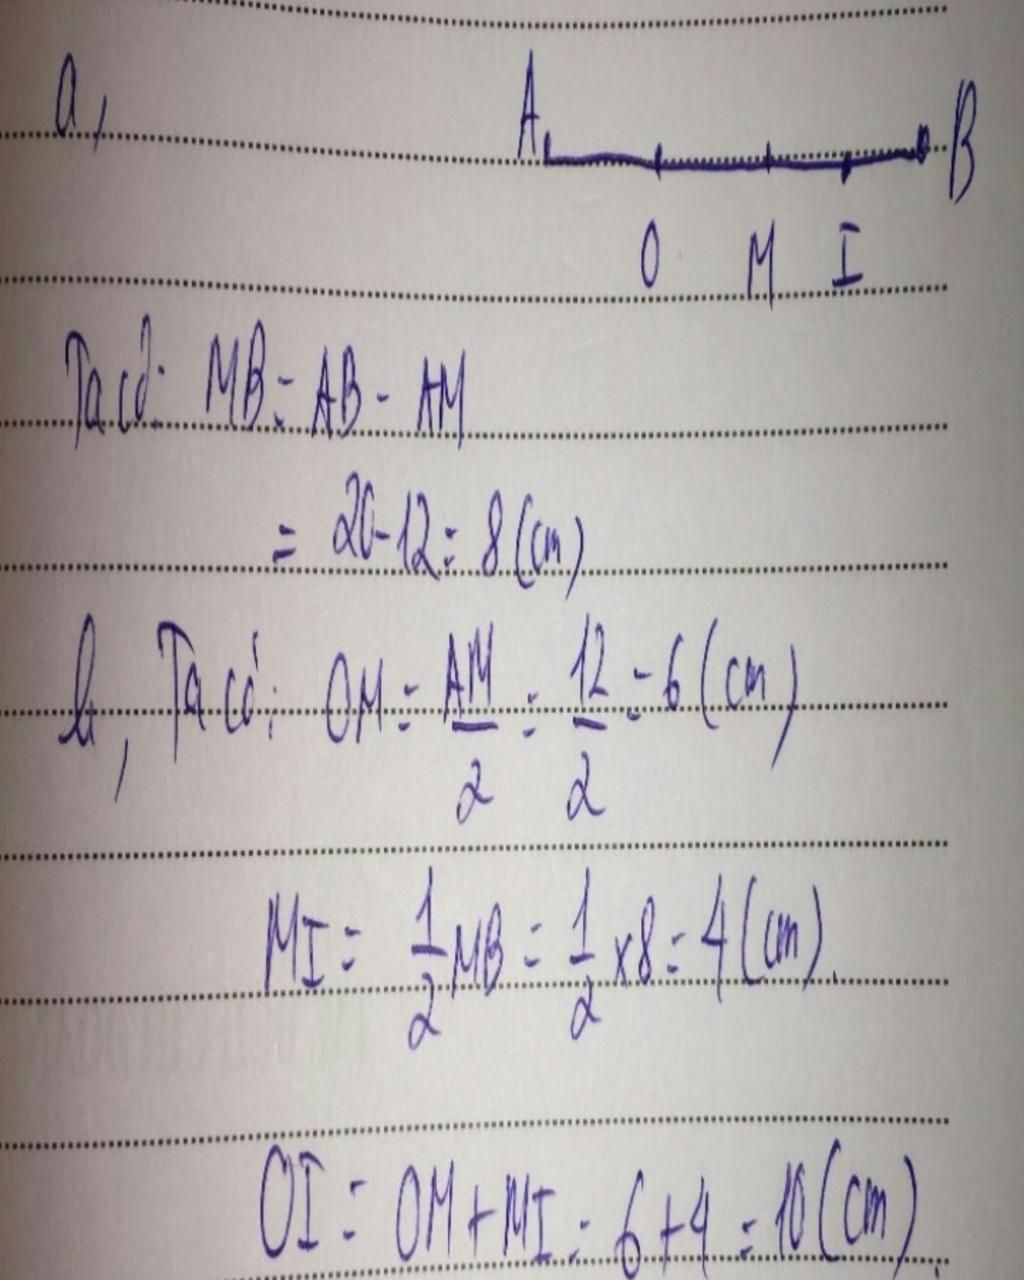 a,
A B
O M I
Ta có: MB = AB - AM
= 20 - 12 = 8 (cm)
b, Ta có: OM = AM/2 = 12/2 = 6 (cm)
MI = 1/2 MB = 1/2 x 8 = 4 (cm).
OI = OM + MI = 6 + 4 = 10 (cm).